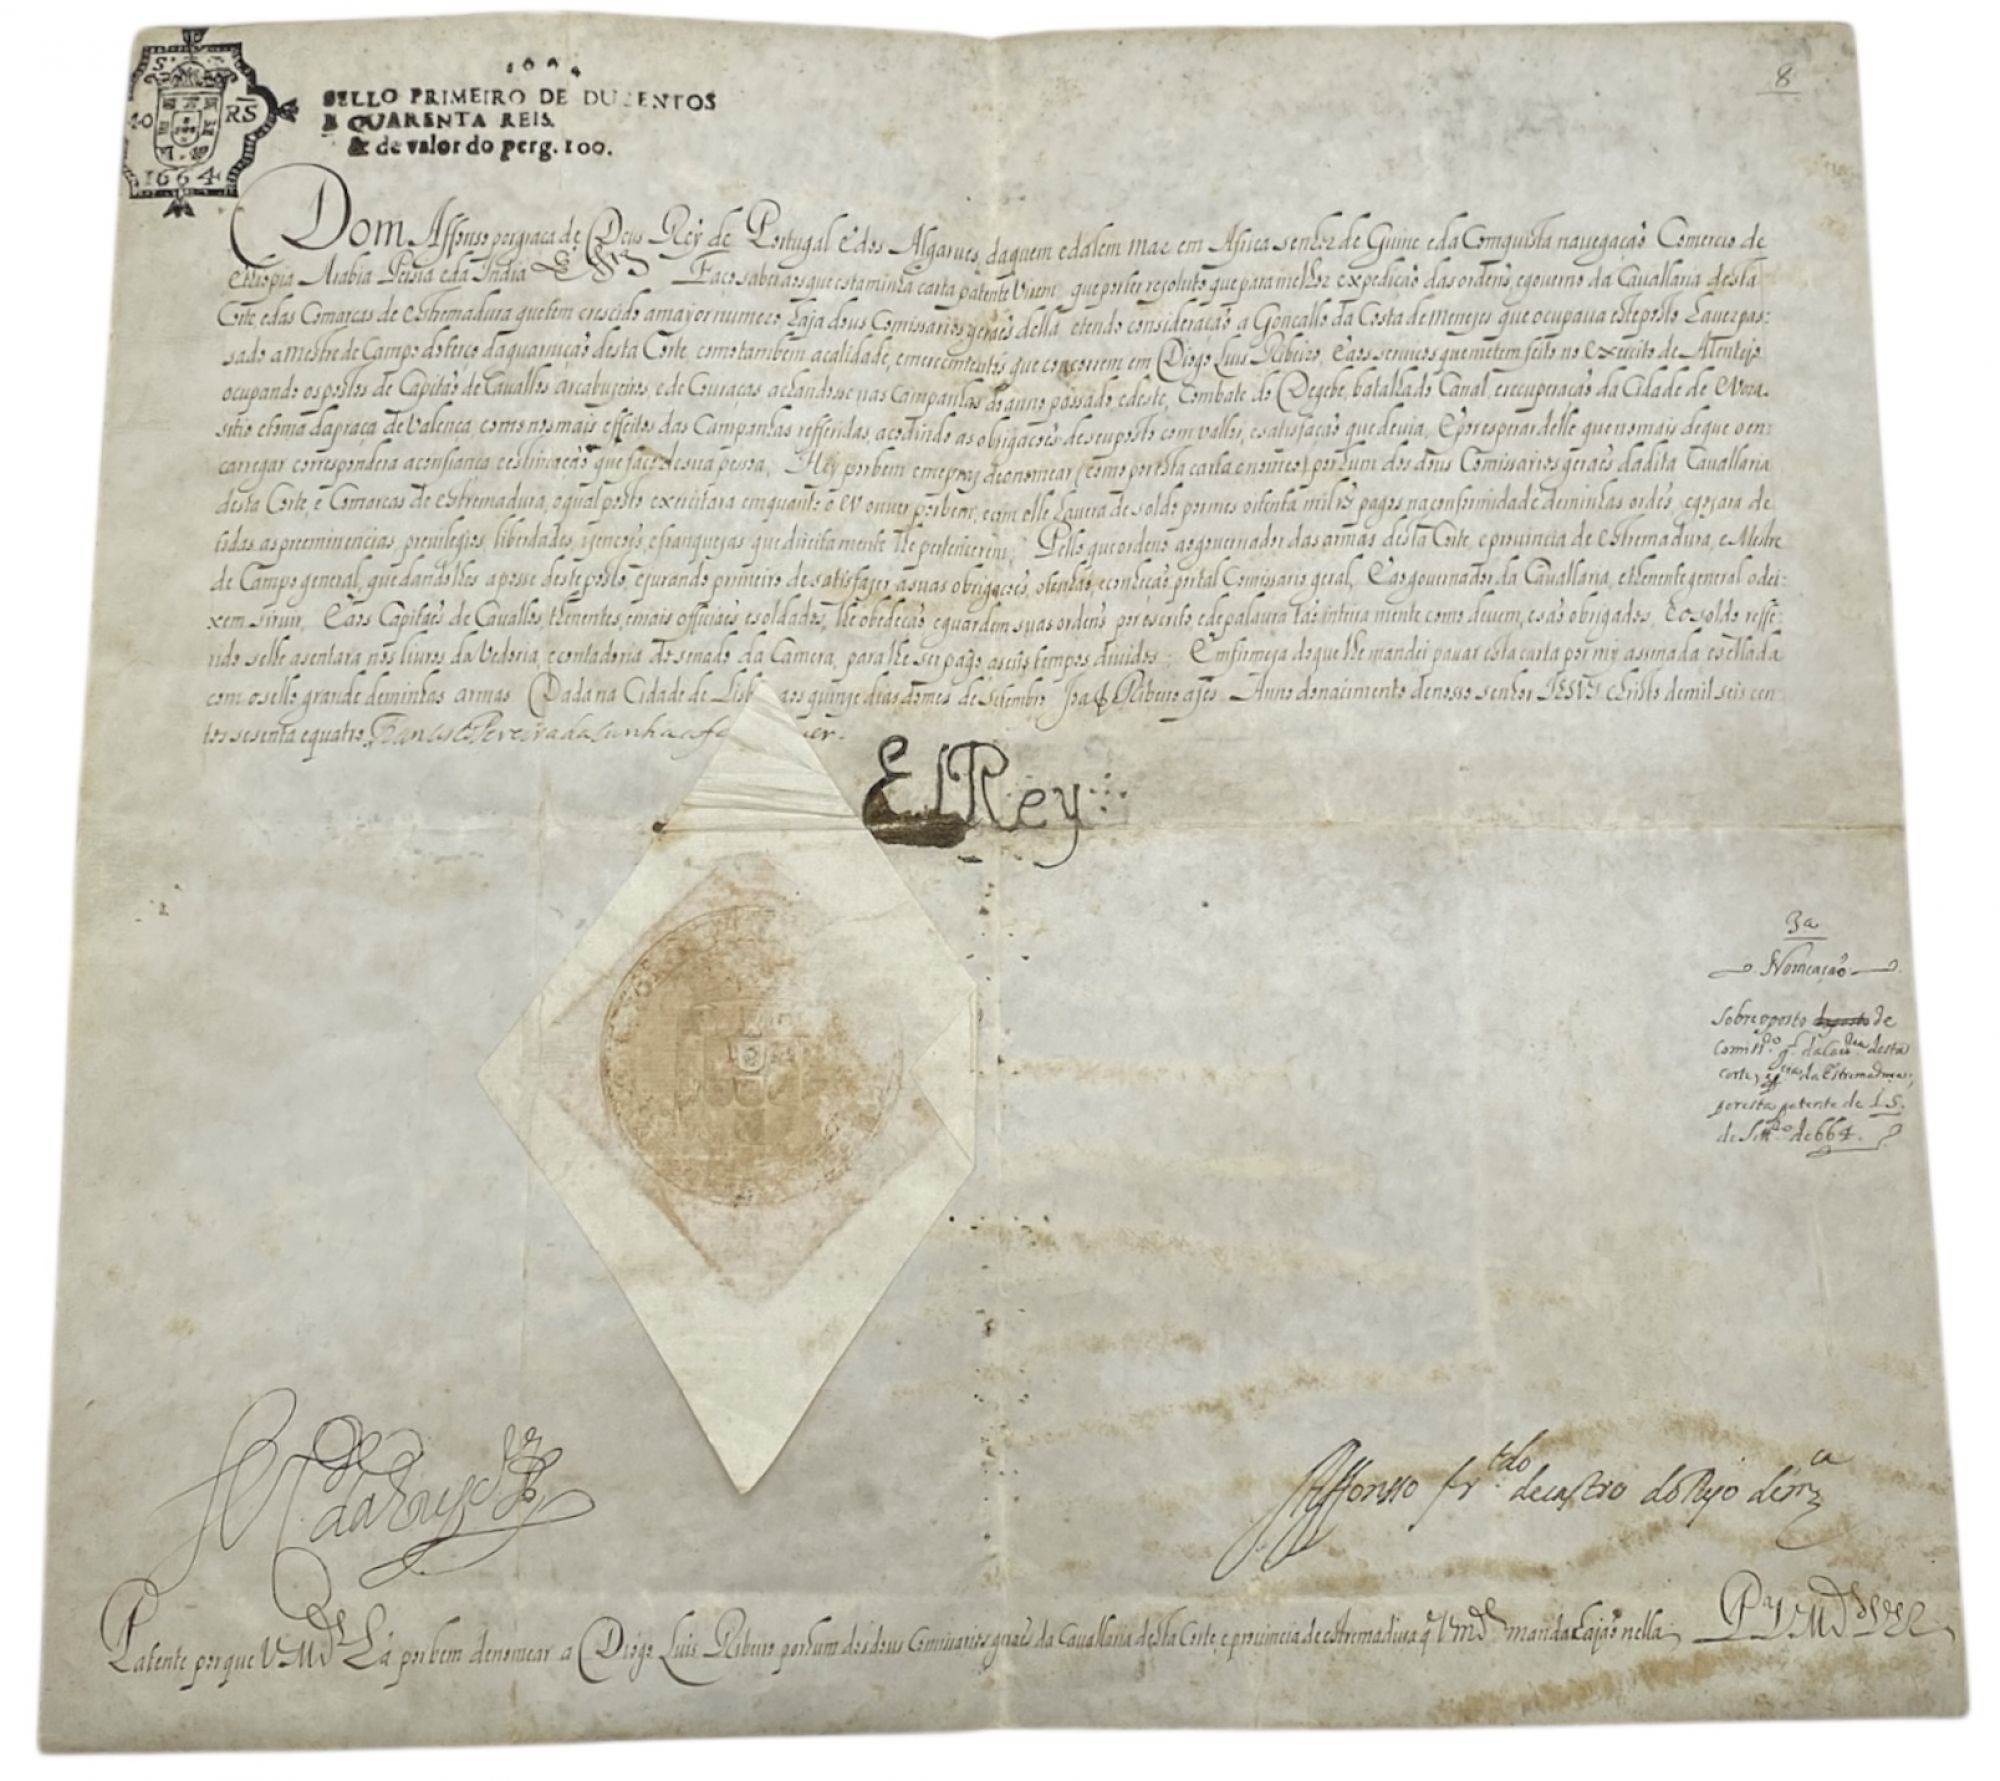 S
40 RS
1664
SELLO PRIMEIRO DE DUZENTOS
E QUARENTA REIS.
& de valor do perg. 100.
8
Dom Affonso por graça de Deus Rey de Portugal e dos Algarves, daquem e dalem mar em Africa senhor de Guine e da Comquista navegação Comercio de
Ethiopia Arabia Persia e da India Faço saber aos que esta minha carta patente virem, que por ser resoluto que para melhor expedição das ordens, e governo da Cavallaria desta
Corte, e das Comarcas de estremadura que tem crescido a mayor numero, haja dous Comissarios geraes della, e tendo consideração a Gonçallo da Costa de Menezes que ocupava este posto haver pas:
sado a mestre de Campo do terço da guarnição desta Corte, como tambem a calidade, e merecimentos que concorrem em Diogo Luis Ribeiro, E aos serviços que me tem feito no Exercito de Alentejo
ocupando os postos de Capitão de Cavallos arcabuzeiros, e de Couraças achandose nas Campanhas do anno passado e deste, Combate do Degebe, batalha do Canal, e recuperação da Cidade de Evora.
sitio e tomada da praça de Valença, como nos mais effeitos das Campanhas refferidas, acodindo as obrigacoes de seu posto com vallor, e satisfação que devia, E por esperar delle que no mais de que o en:
carregar correspondera a confiança e estimação que faço de sua pessoa, Hey por bem e me praz de o nomear (como por esta carta o nomeo) por hum dos dous Comissarios geraes da dita Cavallaria
desta Corte, e Comarcas de estremadura, o qual posto exercitara em quanto o eu ouver por bem, e com elle havera de soldo por mes oitenta mil rs pagos na conformidade de minhas ordes, e gozara de
todas as preeminencias, previlegios, liberdades, izencoes, e franquezas que direitamente lhe pertencerem, Pello que ordeno ao governador das armas desta Corte, e provincia de estremadura, e Mestre
de Campo general, que dandolhes a posse deste posto, e jurando primeiro de satisfazer as suas obrigações, o tenhão, e conheção por tal Comissario geral, E ao governador da Cavallaria, e thenente general o dei:
xem servir, E aos Capitães de Cavallos, thenentes, e mais officiaes e soldados, lhe obedeção, e guardem suas ordens por escrito, e de palavra tão inteiramente como devem, e são obrigados, E o soldo reffe:
rido se lhe asentara nos livros da Vedoria, e contadoria do senado da Camera, para lhe ser pago a seus tempos dividos; E em firmeza do que lhe mandei passar esta carta por my assinada e sellada
com o sello grande de minhas armas Dada na Cidade de Lisb aos quinze dias do mes de Setembro Ribeiro a fes Anno do nacimento de nosso senhor IESVS christo de mil seis cen
tos sesenta e quatro, Franco Pereira da Cunha a fe ver.
El Rey
3a
Nomeação
Sobre o posto de
Comissro. gl. da Cavria. desta
Corte, e da Estremadura,
por esta patente de 15.
de Settro. de 664.
Affonsso frtdo de castro do Rio de mça
Patente porque V Mde. ha por bem de nomear a Diogo Luis Ribeiro por hum dos dous Comissarios geraes da Cavallaria desta Corte, e provincia de estremadura q V Mde. manda haja nella
Pa V Mde Ver